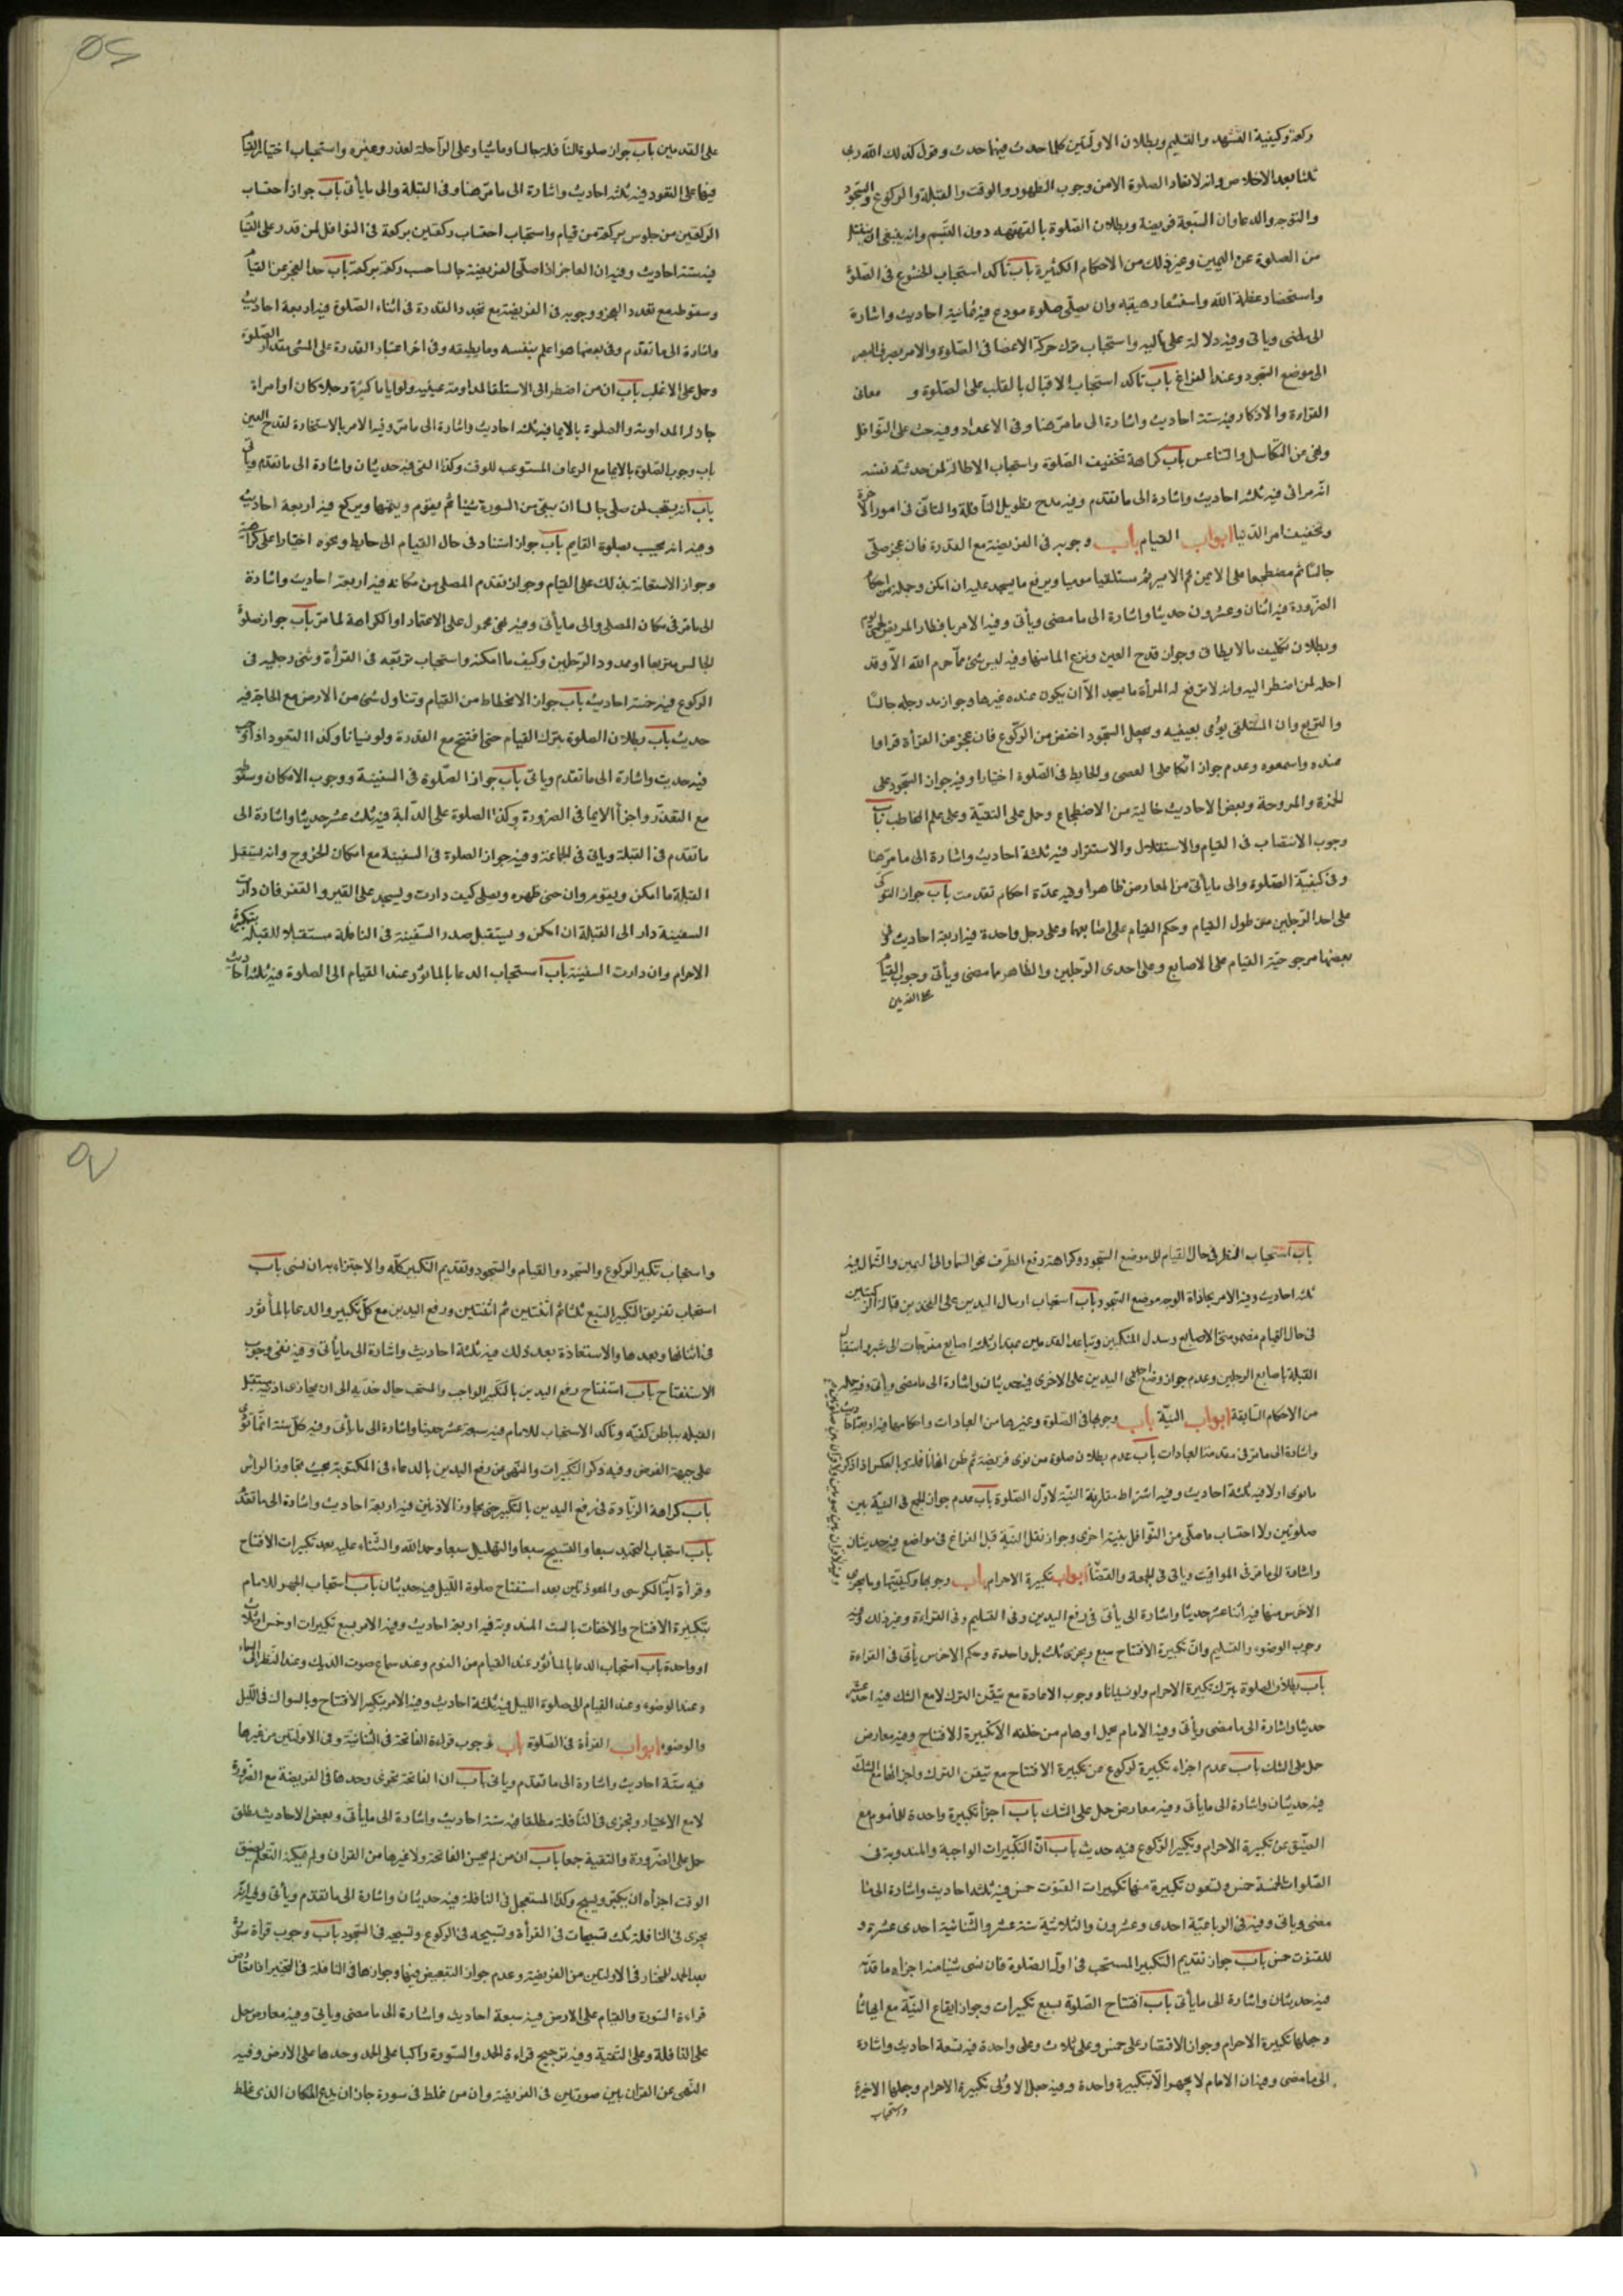 ركعة وكيفية التشهد والتسليم وبطلان الاولتين كلما حدث فيهما حدث وقول كذلك الله ربى
ثلثا بعد الاخلاص وانه لا تعاد الصلوة الا من وجوب الطهور والوقت والقبلة والركوع والسجود
والتوجه والدعا وان السبعة فريضة وبطلان الصلوة بالقهقهه دون التبسم وانه ينبغى ان ينفتل
من الصلوة عن اليمين وغير ذلك من الاحكام الكثيرة باب تاكد استحباب الخشوع فى الصلوة
واستحضار عظمة الله واستشعار هيبته وان يصلى صلوة مودع فيه ثمانية احاديث واشارة
الى مامضى وياتى وفيه دلالة على واستحباب ترك حركة الاعضا فى الصلوة والامر بصرف البصر
الى موضع السجود وعند الفراغ باب تاكد استحباب الاقبال بالقلب على الصلوة و معانى
القراءة والاذكار فيه ستة احاديث واشارة الى ما مر هنا وفى الاعداد وفيه حث على النوافل
ونهى عن التكاسل والتناعس باب كراهة تخفيف الصلوة واستحباب الاطالة لمن حدثته نفسه
انه مرائى فيه ثلثة احاديث واشارة الى ما تقدم وفيه مدح تطويل النافلة والتانى فى امور الآخرة
وتخفيف امر الدنيا ابواب القيام باب وجوبه فى الفريضة مع القدرة فان عجز صلى
جالسا ثم مضطجعا على الايمن ثم الايسر ثم مستلقيا موميا ويرفع ما يسجد عليه ان امكن وجملة من احكام
الضرورة فيه اثنان وعشرون حديثا واشارة الى ما مضى وياتى وفيه الامر بافطار المريض
وبطلان تكليف مالا يطاق وجواز قدح العين ونزع الما منها وفيه ليس شئ مما حرم الله الا وقد
احله لمن اضطر اليه وانه لا ترفع له المرأة ما يسجد الا ان يكون عنده غيرها وجواز مد رجله جالسا
والتربع وان المستلقى يؤمى بعينيه ويجعل السجود اخفض من الركوع فان عجز عن القرأة قراوا
عنده واسمعوه وعدم جواز اتكا على العصى والحايط فى الصلوة اختيارا وفيه جواز السجود على
الخمرة والمروحة وبعض الاحاديث خالية من الاضطجاع وحمل على التقية وعلى علم المخاطب باب
وجوب الانتصاب فى القيام والاستقلال والاستقرار فيه ثلثة احاديث واشارة الى ما مر هنا
وفى كيفية الصلوة والى ما يأتى من المعارض ظاهرا وفيه عدة احكام تقدمت باب جواز التوكى
على احد الرجلين من طول القيام وحكم القيام على اصابعهما وعلى رجل واحدة فيه اربعة احاديث فى
بعضها مرجوحية القيام على الاصابع وعلى احدى الرجلين والظاهر ما مضى ويأتى وجوب القيام
على القدمين
على القدمين باب جواز صلوة النافلة جالسا وماشيا وعلى الراحلة لعذر وغيره واستحباب اختيار القيام
فيها على القعود فيه ثلثة احاديث واشارة الى ما مر هنا وفى القبلة والى ما يأتى باب جواز احتساب
الركعتين من جلوس بركعة من قيام واستحباب احتساب ركعتين بركعة فى النوافل لمن قدر على القيام
فيه ستة احاديث وفيه ان العاجز اذا صلى الفريضة جالسا حسب ركعة بركعة باب حد العجز عن القيام
وسقوطه مع تجدد العجز ووجوبه فى الفريضة مع تجدد القدرة فى اثناء الصلوة فيه اربعة احاديث
واشارة الى ما تقدم وفى بعضها هو اعلم بنفسه وما يطيقه وفى اخر اعتبار القدرة على المشى مقدار الصلوة
وحمل على الاغلب باب ان من اضطر الى الاستلقا لمداومة عينيه ولو اياما كثيرة رجلا كان او امراة
جاز له المداومة والصلوة بالايما فيه ثلثة احاديث واشارة الى ما مر وفيه الامر بالاستخارة لقدح العين
باب وجوب الصلوة بالايما مع الرعاف المستوعب للوقت وكذا القئ فيه حديثان واشارة الى ما تقدم وياتى
باب انه يستحب لمن صلى جالسا ان يبقى من السورة شيئا ثم يقوم ويتمها ويركع فيه اربعة احاديث
وفيه انه يحسب بصلوة القايم باب جواز استناد فى حال القيام الى حايط ونحوه اختيارا على كراهة
وجواز الاستعانة بذلك على القيام وجواز تقدم المصلى من مكانه فيه اربعة احاديث واشارة
الى ما مر فى مكان المصلى والى ما يأتى وفيه نهى محمول على الاعتماد او الكراهة لما مر باب جواز صلوة
الجالس متربعا او ممدود الرجلين وكيف ما امكنه واستحباب تربعه فى القرأة وثنى رجليه فى
الركوع فيه خمسة احاديث باب جواز الانحطاط من القيام وتناول شئ من الارض مع الحاجة فيه
حديث باب بطلان الصلوة بترك القيام حتى افتتح مع القدرة ولو نسيانا وكذا القعود اذا وجب
فيه حديث واشارة الى ما تقدم وياتى باب جواز الصلوة فى السفينة ووجوب الامكان وسقوطه
مع التعذر واجزأ الايما فى الضرورة وكذا الصلوة على الدابة فيه ثلثة عشر حديثا واشارة الى
ما تقدم فى القبلة وياتى فى الجماعة وفيه جواز الصلوة فى السفينة مع امكان الخروج وانه يستقبل
القبلة ما امكن ويقوم وان حنى ظهره ويصلى كيف دارت ويسجد على القير والقفر فان دارت
السفينة دار الى القبلة ان امكن ويستقبل صدر السفينة فى النافلة مستقبلا للقبلة بتكبيرة
الاحرام وان دارت السفينة باب استحباب الدعا بالماثور عند القيام الى الصلوة فيه ثلثة احاديث
باب استحباب النظر فى حال القيام الى موضع السجود وكراهة رفع الطرف نحو السما والى اليمين والشمال فيه
ثلثة احاديث وفيه الامر بمحاذاة الوجه موضع السجود باب استحباب ارسال اليدين على الفخذين قبالة الركبتين
فى حال القيام مضمومتى الاصابع وسدل المنكبين وتباعد القدمين بمقدار ثلث اصابع مفرجات الى شبر واستقبال
القبلة باصابع الرجلين وعدم جواز وضع احدى اليدين على الاخرى فيه حديثان واشارة الى ما مضى ويأتى وفيه جملة
من الاحكام السابقة ابواب النية باب وجوبها فى الصلوة وغيرها من العبادات واحكامها فيه اربعة احاديث
واشارة الى ما مر فى مقدمة العبادات باب عدم بطلان صلوة من نوى فريضة ثم ظن انها نافلة وبالعكس اذا ذكر
ما نوى اولا فيه ثلثة احاديث وفيه اشتراط مقارنة النية لاول الصلوة باب عدم جواز الجمع فى النية بين
صلوتين ولا احتساب ما صلى من النوافل بنية اخرى وجواز نقل النية قبل الفراغ فى مواضع فيه حديثان
واشارة الى ما مر فى المواقيت وياتى فى الجمعة والقضا ابواب تكبيرة الاحرام باب وجوبها وكيفيتها وما يجزى
الاخرس منها فيه اثنا عشر حديثا واشارة الى ياتى فى رفع اليدين وفى التسليم وفى القراءة وغير ذلك وفيه
وجوب الوضوء والتسليم وان تكبيرة الافتتاح سبع ويجزى ثلث بل واحدة وحكم الاخرس ياتى فى القراءة
باب بطلان الصلوة بترك تكبيرة الاحرام ولو نسيانا ووجوب الاعادة مع تيقن الترك لا مع الشك فيه احد عشر
حديثا واشارة الى ما مضى ويأتى وفيه الامام يحمل اوهام من خلفه الا تكبيرة الافتتاح وفيه معارض
حمل على الشك باب عدم اجزاء تكبيرة الركوع عن تكبيرة الافتتاح مع تيقن الترك واجزائها مع الشك
فيه حديثان واشارة الى ما يأتى وفيه معارض حمل على الشك باب اجزأ تكبيرة واحدة للمأموم مع
الضيق عن تكبيرة الاحرام وتكبير الركوع فيه حديث باب ان التكبيرات الواجبة والمندوبة فى
الصلوات الخمسة خمس وتسعون تكبيرة منها تكبيرات القنوت خمس فيه ثلثة احاديث واشارة الى ما
مضى وياتى وفيه فى الرباعية احدى وعشرون والثلاثية ستة عشر والثنائية احدى عشرة و
للقنوت خمس باب جواز تقديم التكبير المستحب فى اول الصلوة فان نسى شيئا منه اجزاه ما قدمه
فيه حديثان واشارة الى ما يأتى باب افتتاح الصلوة بسبع تكبيرات وجواز ايقاع النية مع ايها شا
وجعلها تكبيرة الاحرام وجواز الاقتصار على خمس وعلى ثلاث وعلى واحدة فيه تسعة احاديث واشارة
الى ما مضى وفيه ان الامام لا يجهر الا بتكبيرة واحدة وفيه جعل الاولى تكبيرة الاحرام وجعلها الاخيرة
واستحباب
واستحباب تكبير الركوع والسجود والقيام والسجود وتقديم التكبير كله والاجتزاء به ان نسى باب
استحباب تفريق التكبير السبع ثلثا ثم اثنتين ثم اثنتين ورفع اليدين مع كل تكبير والدعا بالمأثور
فى اثنائها وبعدها والاستعاذة بعد ذلك فيه ثلثة احاديث واشارة الى ما يأتى وفيه نفى وجوب
الاستفتاح باب استفتاح رفع اليدين بالتكبير الواجب والمستحب حيال خديه الى ان يحاذى اذنيه يستقبل
القبله بباطن كفيه وتأكد الاستحباب للامام فيه سبعة عشر حديثا واشارة الى ما يأتى وفيه
على جهة الفرض وفيه ذكر التكبيرات والنهى عن رفع اليدين بالدعاء فى المكتوبة بحيث تجاوز الراس
باب كراهة الزيادة فى رفع اليدين بالتكبير حتى يجاوز الاذنين فيه اربعة احاديث واشارة الى ما تقدم
باب استحباب التحميد سبعا والتسبيح سبعا والتهليل سبعا وحمد الله والثناء عليه بعد تكبيرات الافتتاح
وقرأة آية الكرسى والمعوذتين بعد استفتاح صلوة الليل فيه حديثان باب استحباب الجهر للامام
بتكبيرة الافتتاح والاخفات بالست المندوبة فيه اربعة احاديث وفيه الامر بسبع تكبيرات او خمس او ثلاث
او واحدة باب استحباب الدعا بالمأثور عند القيام من النوم وعند سماع صوت الديك وعند النظر الى السماء
وعند الوضوء وعند القيام الى صلوة الليل فيه ثلثة احاديث وفيه الامر بتكبير الافتتاح وبالسواك فى الليل
والوضوء ابواب القرأة فى الصلوة باب وجوب قراءة الفاتحة فى الثنائية وفى الاولتين من غيرها
فيه ستة احاديث واشارة الى ما تقدم وياتى باب ان الفاتحة تجزى وحدها فى الفريضة مع الضرورة
لا مع الاختيار وتجزى فى النافلة مطلقا فيه ستة احاديث واشارة الى ما يأتى وبعض الاحاديث مطلق
حمل على الضرورة والتقية جمعا باب ان من لم يحسن الفاتحة ولا غيرها من القران ولم يمكنه التعلم لضيق
الوقت اجزأه ان يكبر ويسبح وكذا المستعجل فى النافلة فيه حديثان واشارة الى ما تقدم ويأتى وفيه انه
يجزى فى النافلة ثلث تسبيحات فى القرأة وتسبيحه فى الركوع وتسبيحه فى السجود باب وجوب قرأة سورة
بعد الحمد للمختار فى الاولتين من الفريضة وعدم جواز التبعيض فيها وجوازها فى النافلة
قراءة السورة والقيام على الارض فيه سبعة احاديث واشارة الى ما مضى وياتى وفيه معارض حمل
على النافلة وعلى التقية وفيه ترجيح قراءة الحمد والسورة راكبا على الحمد وحدها على الارض وفيه
النهى عن القران بين سورتين فى الفريضة وان من غلط فى سورة جاز ان يدع المكان الذى غلط